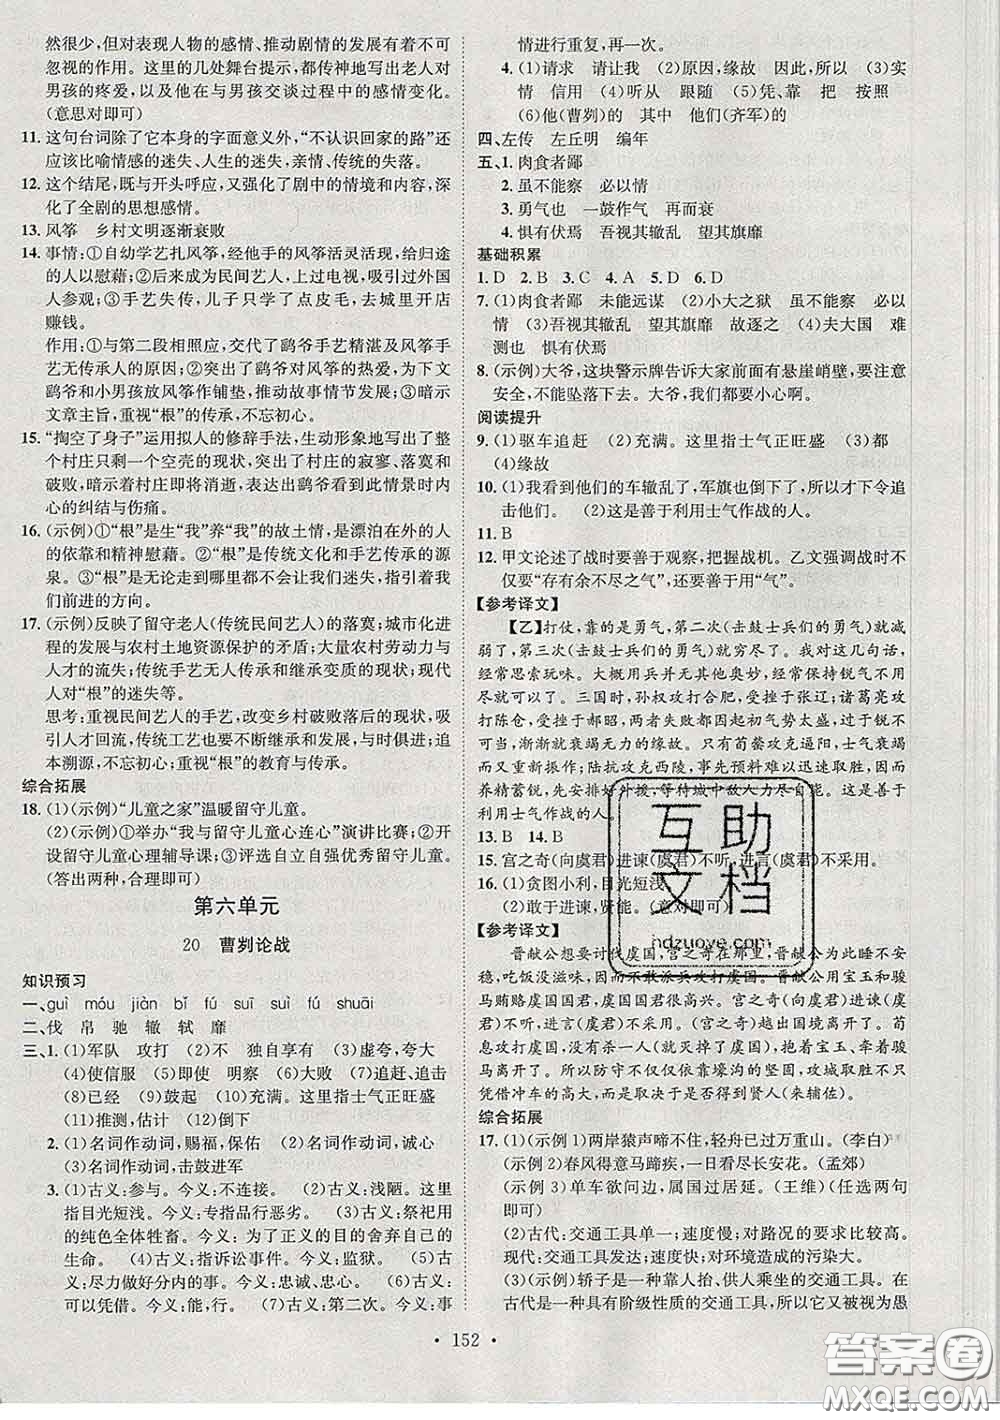 然很少,但对表现人物的感情、推动剧情的发展有着不可
忽视的作用。这里的几处舞台提示,都传神地写出老人对
男孩的疼爱,以及他在与男孩交谈过程中的感情变化。
(意思对即可)
11. 这句台词除了它本身的字面意义外,“不认识回家的路”还
应该比喻情感的迷失、人生的迷失,亲情、传统的失落。
12. 这个结尾,既与开头呼应,又强化了剧中的情境和内容,深
化了全剧的思想感情。
13. 风筝 乡村文明逐渐衰败
14. 事情:①自幼学艺扎风筝,经他手的风筝活灵活现,给归途
的人以慰藉;②后来成为民间艺人,上过电视,吸引过外国
人参观;③手艺失传,儿子只学了点皮毛,去城里开店
赚钱。
作用:①与第二段相照应,交代了鹞爷手艺精湛及风筝手
艺无传承人的原因;②突出了鹞爷对风筝的热爱,为下文
鹞爷和小男孩放风筝作铺垫,推动故事情节发展;③暗示
文章主旨,重视“根”的传承,不忘初心。
15. “掏空了身子”运用拟人的修辞手法,生动形象地写出了整
个村庄只剩一个空壳的现状,突出了村庄的寂寥、落寞和
破败,暗示着村庄即将消逝,表达出鹞爷看此情景时内
心的纠结与伤痛。
16. (示例)①“根”是生“我”养“我”的故土情,是漂泊在外的人
的依靠和精神慰藉。②“根”是传统文化和手艺传承的源
泉。③“根”是无论走到哪里都不会让我们迷失,指引着我
们前进的方向。
17. (示例)反映了留守老人(传统民间艺人)的落寞;城市化进
程的发展与农村土地资源保护的矛盾;大量农村劳动力与
人才的流失;传统手艺无人传承和继承变质的现状;现代
人对“根”的迷失等。
思考:重视民间艺人的手艺,改变乡村破败落后的现状,吸
引人才回流,传统工艺也要不断继承发展,与时俱进;追
本溯源,重视“根”的教育与传承。
综合拓展
18. (1)(示例)“儿童之家”温暖留守儿童。
(2)(示例)①举办“我与留守儿童心连心”演讲比赛;②开
设留守儿童心理辅导课;③评选自立自强优秀留守儿童。
(答出两种,合理即可)
第六单元
20 曹刿论战
知识预习
一、guì móu jiàn bǐ fú suī suì fú shuāi
二、伐 帛 驰 辙 轼 靡
三、1. (1)军队 攻打 (2)不 独自享有 (3)虚夸,夸大
(4)使信服 (5)即使 明察 (6)大败 (7)追赶、追击
(8)已经 (9)鼓起 (10)充满。这里指士气正旺盛
(11)推测,估计 (12)倒下
2. (1)名词作动词,赐福,保佑 (2)名词作动词,击鼓
(3)名词作动词,击鼓进军
3. (1)古义:参与。今义:不连接。 (2)古义:浅陋。这里
指目光短浅。今义:专指品行恶劣。 (3)古义:祭祀用
的纯色全体牲畜。今义:为了正义的目的舍弃自己的
生命。 (4)古义:指诉讼事件。今义:监狱。 (5)古
义:尽力做好分内的事。今义:忠诚、忠心。 (6)古义:
可以凭借。今义:可以。 (7)古义:第二次。今义:事
情进行重复,再一次。
4. (1)请求 请让我 (2)原因,缘故 因此,所以 (3)实
情 信用 (4)听从 跟随 (5)凭、靠 把 按照
(6)他(曹刿) 其中 他们(齐军)的
四、左传 左丘明 编年
五、1. 肉食者鄙
2. 虽不能察 必以情
3. 勇气也 一鼓作气 再而衰
4. 惧有伏焉 吾视其辙乱 望其旗靡
基础积累
1. D 2. B 3. C 4. A 5. D 6. D
7. (1)肉食者鄙 未能远谋 (2)小大之狱 虽不能察 必以
情 (3)吾视其辙乱 望其旗靡 故逐之 (4)夫大国 难
测也 惧有伏焉
8. (示例)大爷,这块警示牌告诉大家前面有悬崖峭壁,要注意
安全,不能坠落下去。大爷,我们都要小心啊。
阅读提升
9. (1)驱车追赶 (2)充满。这里指士气正旺盛 (3)都
(4)缘故
10. (1)我看到他们的车辙乱了,军旗也倒下了,所以才下令追
击他们。 (2)这是善于利用士气作战的人。
11. B
12. 甲文论述了战时要善于观察,把握战机。乙文强调战时不
仅要“存有余不尽之气”,还要善于用“气”。
【参考译文】
【乙】打仗,靠的是勇气,第二次(击鼓士兵们的勇气)就减
弱了,第三次(击鼓士兵们的勇气)就穷尽了。我对这几句话,
经常思索玩味。大概用兵并无其他奥妙,经常保持锐气用
不尽就可以了。三国时,孙权攻打合肥,受挫于张辽;诸葛亮攻
打陈仓,受挫于郝昭,两者失败都是因起初气势太盛,过于锐不
可当,渐渐就衰竭无力的缘故。只有荀罃攻克逼阳,士气衰竭
而又振作;陆抗攻克西陵,事先预料难以迅速取胜,因而
养精蓄锐,先安排好外援,等待城中敌人力尽自毙。这是善于
利用士气作战的人。
13. B 14. B
15. 宫之奇(向虞君)进谏(虞君)不听,进言(虞君)不采用。
16. (1)贪图小利,目光短浅。
(2)敢于进谏,贤能。(意对即可)
【参考译文】
晋献公想要讨伐虞国,宫之奇在那里,晋献公为此坐卧不
安、吃饭没滋味,因而不敢派兵攻打虞国。晋献公用宝玉和骏
马贿赂虞国国君,虞国国君很高兴。宫之奇(向虞君)进谏(虞
君)不听,进言(虞君)不采用。(宫之奇)越出国境离开了。荀
息攻打虞国,没有杀一人(就灭掉了虞国),抱着宝玉、牵着骏马
骏马离开了。所以防守不仅仅依靠壕沟的坚固,攻城不仅仅
凭借冲车的高大,而是取决于是否得到贤人(来辅佐)。
综合拓展
17. (1)(示例 1)两岸猿声啼不住,轻舟已过万重山。(李白)
(示例 2)春风得意马蹄疾,一日看尽长安花。(孟郊)
(示例 3)单车欲问边,属国过居延。(王维)(任选两句
即可)
(2)古代:交通工具单一;速度慢;对路况的要求比较高。
现代:交通工具发达;速度快;对环境造成的污染大。
(3)(示例)轿子是一种靠人抬、供人乘坐的交通工具。在
古代是一种具有阶级性质的交通工具,所以它又被视为愚
• 152 •
互助
文档
hdzuoye.com
答案圈
MXQE.COM